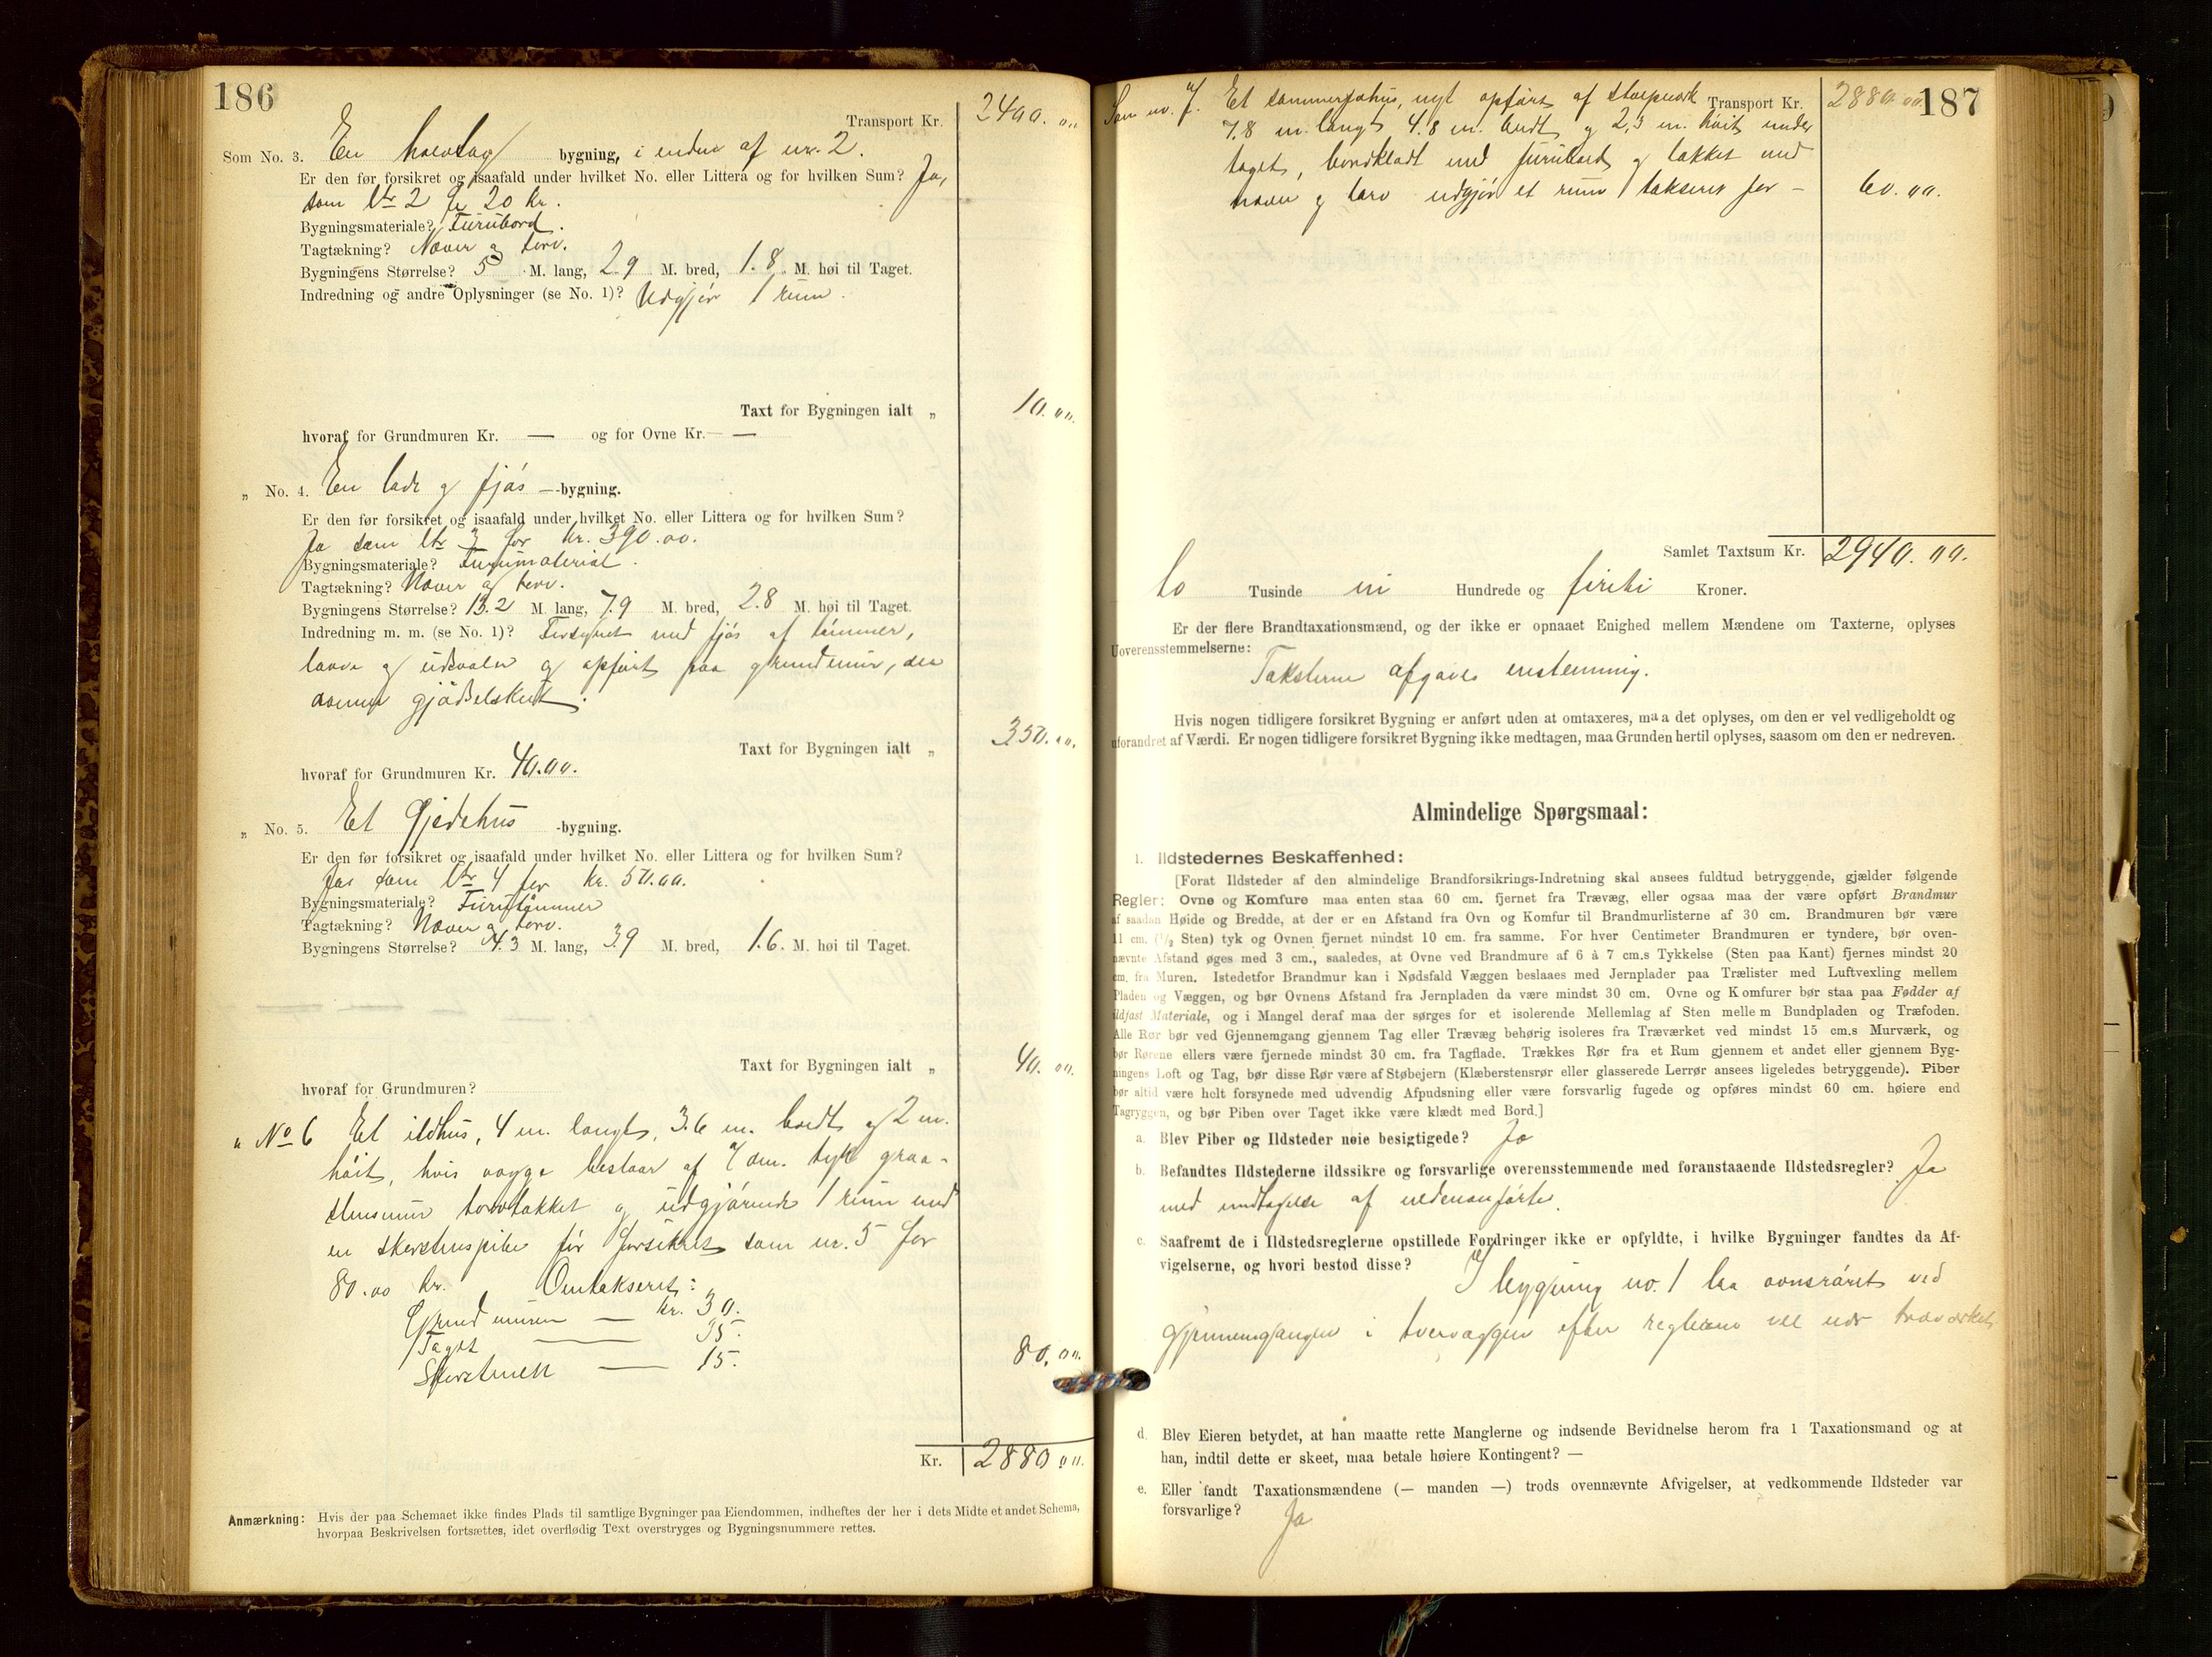 186
Transport Kr. 2400.00
Som No. 3. En bygning, i enden af nr. 2.
Er den før forsikret og isaafald under hvilket No. eller Littera og for hvilken Sum? Ja,
som ltr 2 for 20 kr.
Bygningsmateriale? Furubord.
Tagtækning? Næver og torv.
Bygningens Størrelse? 5 M. lang, 2.9 M. bred, 1.8 M. høi til Taget.
Indredning og andre Oplysninger (se No. 1)? Udgjør 1 rum.
Taxt for Bygningen ialt „ 10.00.
hvoraf for Grundmuren Kr. — og for Ovne Kr. —
„ No. 4. En lade og fjøs —-bygning.
Er den før forsikret og isaafald under hvilket No. eller Littera og for hvilken Sum?
Ja som ltr 3 for kr. 390.00.
Bygningsmateriale? Furumaterial.
Tagtækning? Næver og torv.
Bygningens Størrelse? 13.2 M. lang, 7.9 M. bred, 2.8 M. høi til Taget.
Indredning m. m. (se No. 1)? Forsynet med fjøs af tømmer,
laave og udsvaler og opført paa grundmur, der
danner gjødselskut.
Taxt for Bygningen ialt „ 350.00.
hvoraf for Grundmuren Kr. 40.00.
„ No. 5. Et Gjedehus -bygning.
Er den før forsikret og isaafald under hvilket No. eller Littera og for hvilken Sum?
Ja som ltr 4 for kr. 50.00.
Bygningsmateriale? Furutømmer
Tagtækning? Næver og torv.
Bygningens Størrelse? 4.3 M. lang, 3.9 M. bred, 1.6. M. høi til Taget.
Taxt for Bygningen ialt „ 40.00.
hvoraf for Grundmuren?
„ No 6 Et ildhus, 4 m. langt, 3.6 m. bredt og 2 m.
høit, hvis vægge bestaar af dm. tyk graa-
stensmur torvtakket og udgjørende 1 rum med
en skorstenspibe før forsikret som nr. 5 for
80.00 kr. Omtakseret:
Grundmuren — kr. 30.
Taget — 35.
Skorstenen — 15. 80.00.
Kr. 2880.00.
Anmærkning: Hvis der paa Schemaet ikke findes Plads til samtlige Bygninger paa Eiendommen, indheftes der her i dets Midte et andet Schema,
hvorpaa Beskrivelsen fortsættes, idet overflødig Text overstryges og Bygningsnummere rettes.
187
Som no. 7. Et sommerfæhus, nyt opført af Transport Kr. 2880.00
7.8 m. langt 4.8 m. bredt og 2,3 m. høit under
taget, bordklædt med furubord og takket med
næver og torv udgjør et rum takseres for — 60.00.
Samlet Taxtsum Kr. 2940.00.
to Tusinde ni Hundrede og firti Kroner.
Er der flere Brandtaxationsmænd, og der ikke er opnaaet Enighed mellem Mændene om Taxterne, oplyses
Uoverensstemmelserne:
Taksterne afgaves enstemmig.
Hvis nogen tidligere forsikret Bygning er anført uden at omtaxeres, maa det oplyses, om den er vel vedligeholdt og
uforandret af Værdi. Er nogen tidligere forsikret Bygning ikke medtagen, maa Grunden hertil oplyses, saasom om den er nedreven.
Almindelige Spørgsmaal:
1. Ildstedernes Beskaffenhed:
[Forat Ildsteder af den almindelige Brandforsikrings-Indretning skal ansees fuldtud betryggende, gjælder følgende
Regler: Ovne og Komfure maa enten staa 60 cm. fjernet fra Trævæg, eller ogsaa maa der være opført Brandmur
af saadan Høide og Bredde, at der er en Afstand fra Ovn og Komfur til Brandmurlisterne af 30 cm. Brandmuren bør være
11 cm. (1/2 Sten) tyk og Ovnen fjernet mindst 10 cm. fra samme. For hver Centimeter Brandmuren er tyndere, bør oven-
nævnte Afstand øges med 3 cm., saaledes, at Ovne ved Brandmure af 6 à 7 cm.s Tykkelse (Sten paa Kant) fjernes mindst 20
cm. fra Muren. Istedetfor Brandmur kan i Nødsfald Væggen beslaaes med Jernplader paa Trælister med Luftvexling mellem
Pladen og Væggen, og bør Ovnens Afstand fra Jernpladen da være mindst 30 cm. Ovne og Komfurer bør staa paa Fødder af
ildfast Materiale, og i Mangel deraf maa der sørges for et isolerende Mellemlag af Sten mellem Bundpladen og Træfoden.
Alle Rør bør ved Gjennemgang gjennem Tag eller Trævæg behørig isoleres fra Træværket ved mindst 15 cm.s Murværk, og
bør Rørene ellers være fjernede mindst 30 cm. fra Tagflade. Trækkes Rør fra et Rum gjennem et andet eller gjennem Byg-
ningens Loft og Tag, bør disse Rør være af Støbejern (Klæberstensrør eller glasserede Lerrør ansees ligeledes betryggende). Piber
bør altid være helt forsynede med udvendig Afpudsning eller være forsvarlig fugede og opføres mindst 60 cm. høiere end
Tagryggen, og bør Piben over Taget ikke være klædt med Bord.]
a. Blev Piber og Ildsteder nøie besigtigede? Ja
b. Befandtes Ildstederne ildssikre og forsvarlige overensstemmende med foranstaaende Ildstedsregler? Ja
med undtagelse af nedenanførte.
c. Saafremt de i Ildstedsreglerne opstillede Fordringer ikke er opfyldte, i hvilke Bygninger fandtes da Af-
vigelserne, og hvori bestod disse? I bygning no. 1 laa ovnsrøret ved
gjennemgangen i tvervæggen efter reglerne vel nær træværket
d. Blev Eieren betydet, at han maatte rette Manglerne og indsende Bevidnelse herom fra 1 Taxationsmand og at
han, indtil dette er skeet, maa betale høiere Kontingent? —
e. Eller fandt Taxationsmændene (— manden —) trods ovennævnte Afvigelser, at vedkommende Ildsteder var
forsvarlige? Ja